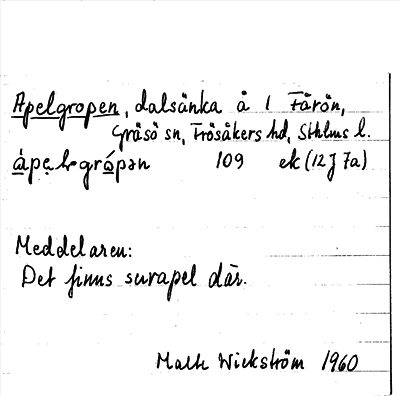 Apelgropen, dalsänka å 1 Fårön,
Gräsö sn, Frösåkers hd, Sthlms l.
ápęl-grópən 109 ek (12J 7a)
Meddelaren:
Det finns surapel där.
Wickström 1960